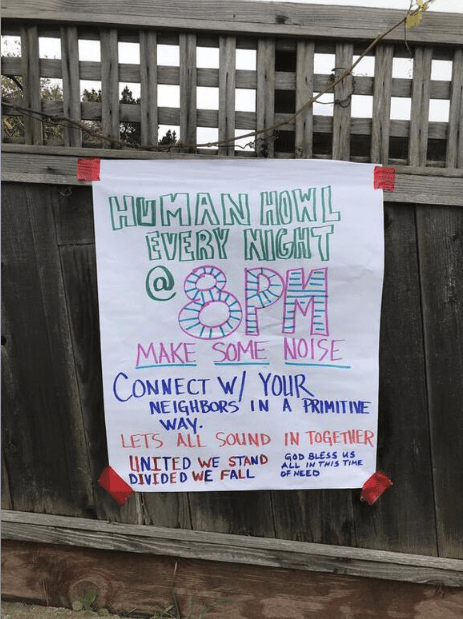 HUMAN HOWL
EVERY NIGHT
@ 8PM
MAKE SOME NOISE
CONNECT W/ YOUR
NEIGHBORS IN A PRIMITIVE
WAY.
LETS ALL SOUND IN TOGETHER
UNITED WE STAND
DIVIDED WE FALL
GOD BLESS US
ALL IN THIS TIME
OF NEED